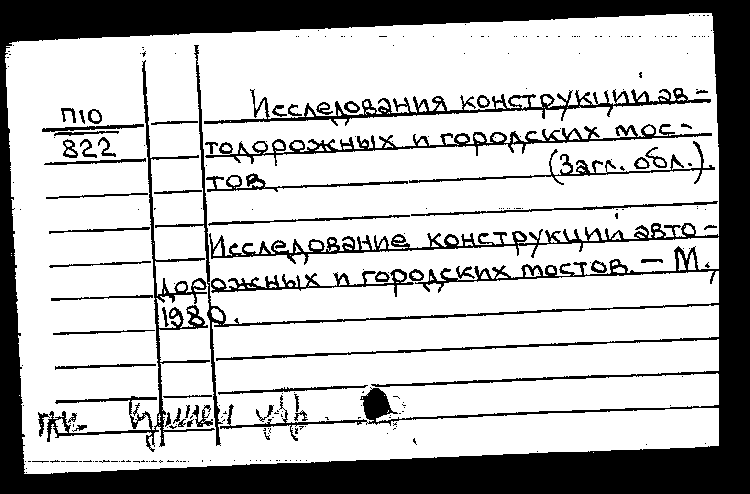 П10
822
Исследования конструкций ав-
тодорожных и городских мос-
тов (Загл. обл.).
Исследование конструкций авто-
дорожных и городских мостов. — М.,
1980.